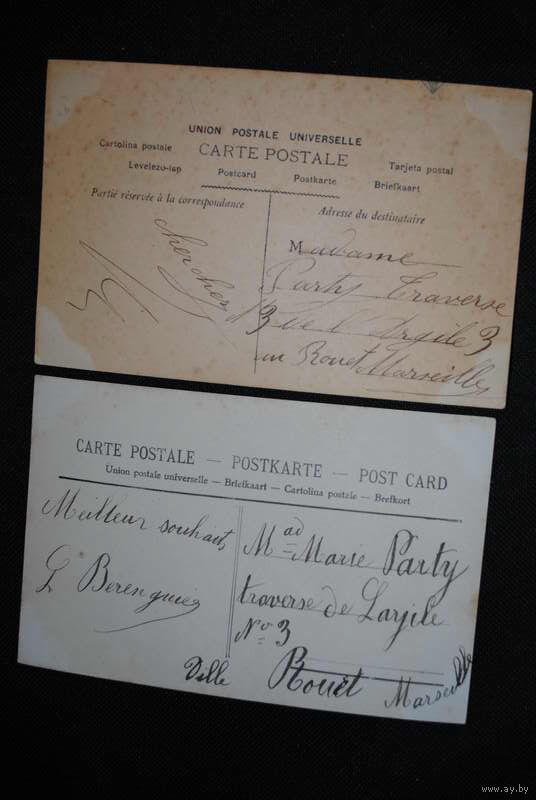 UNION POSTALE UNIVERSELLE
CARTE POSTALE
Cartolina postale
Tarjeta postal
Levelezo-lap
Postcard
Postkarte
Briefkaart
Partie réservée à la correspondance
Adresse du destinataire
Madame
Party Traverse
Rue l'Argile 3
au Rouet Marseille
CARTE POSTALE — POSTKARTE — POST CARD
Union postale universelle — Briefkaart — Cartolina postale — Brefkort
Meilleur souhaits
Berenguier
Mad Marie Party
traverse de Largile
No 3
Ville
Rouet
Marseille
www.ay.by